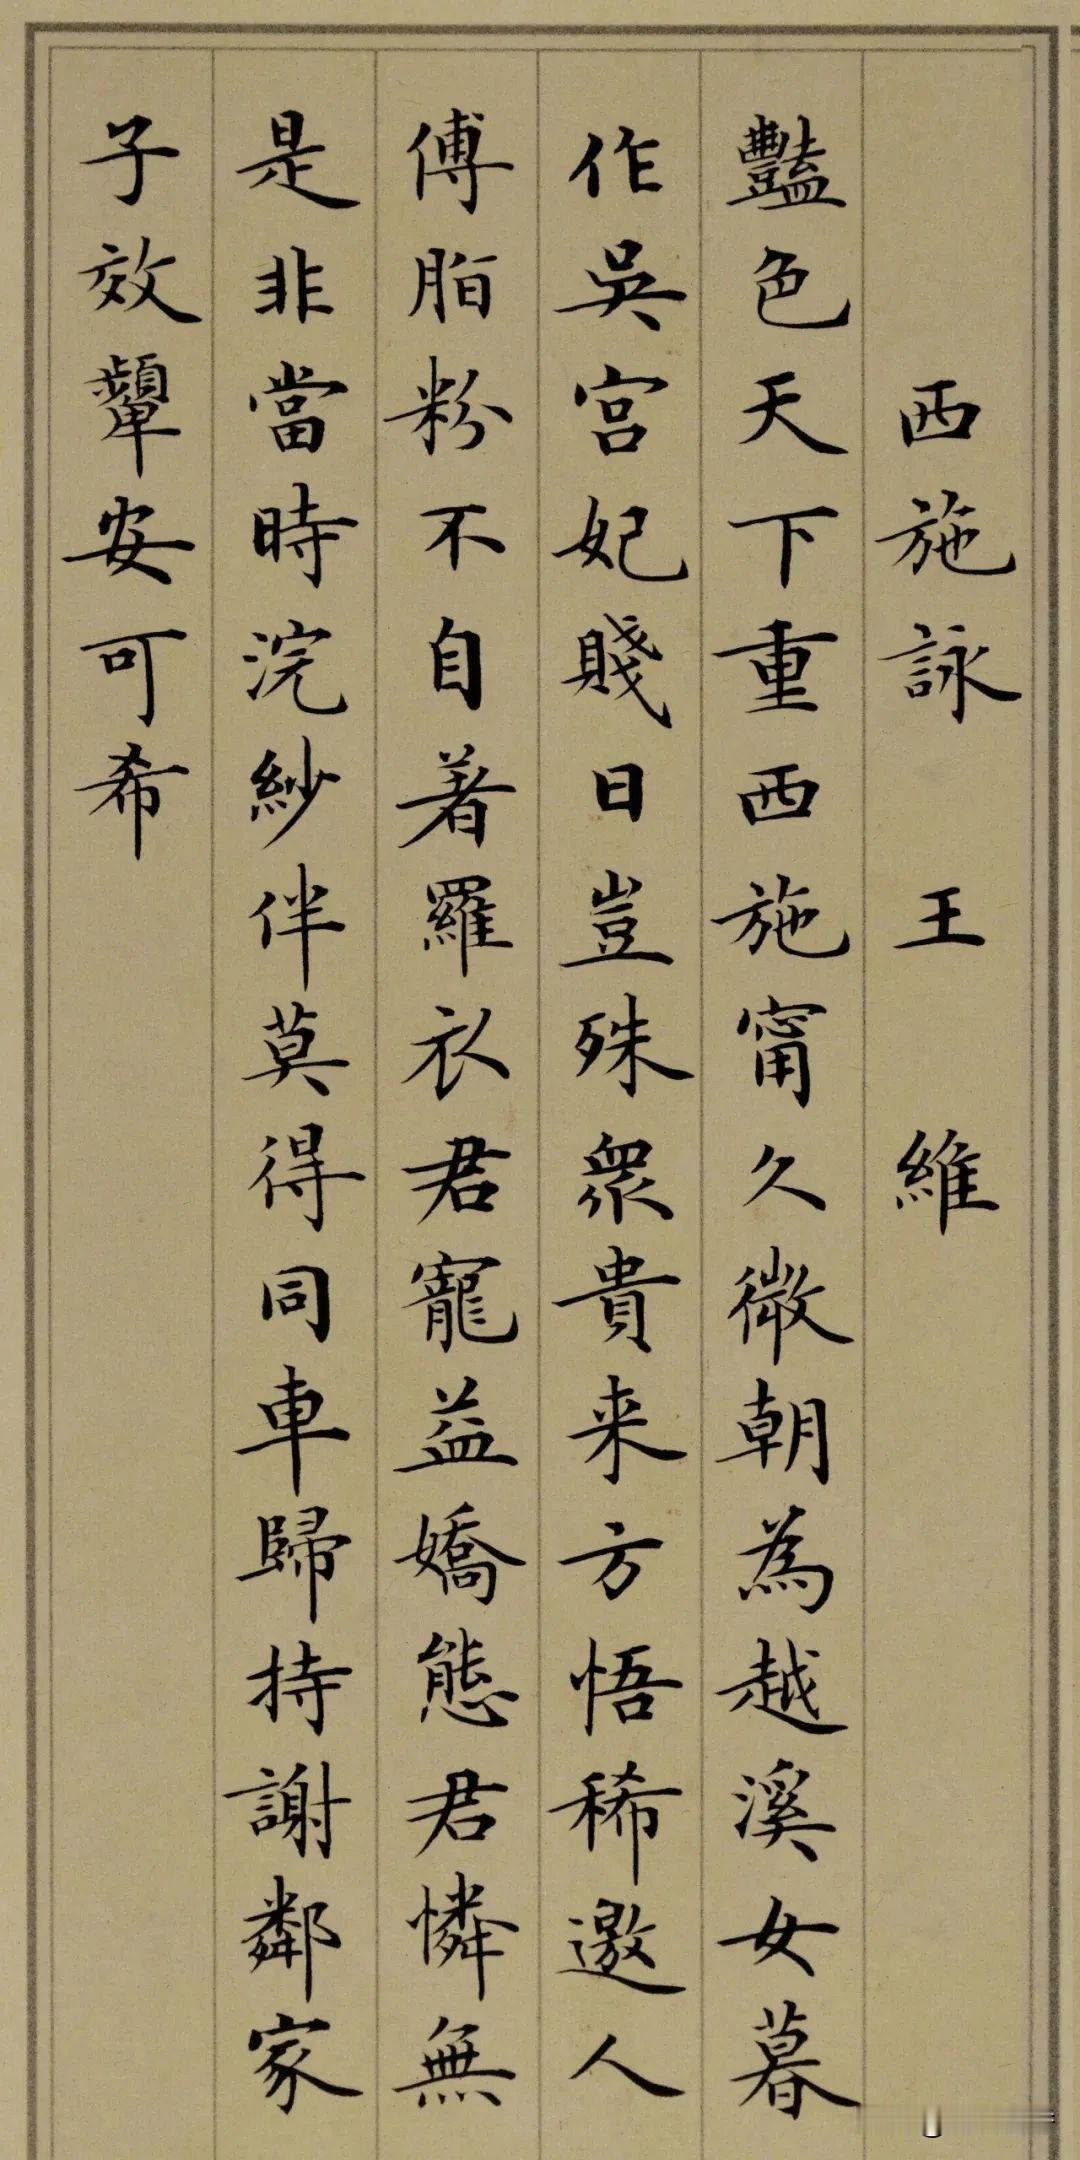 西施詠 王維
豔色天下重西施甯久微朝為越溪女暮
作吳宮妃賤日豈殊衆貴来方悟稀邀人
傅脂粉不自著羅衣君寵益嬌態君憐無
是非當時浣紗伴莫得同車歸持謝鄰家
子效顰安可希